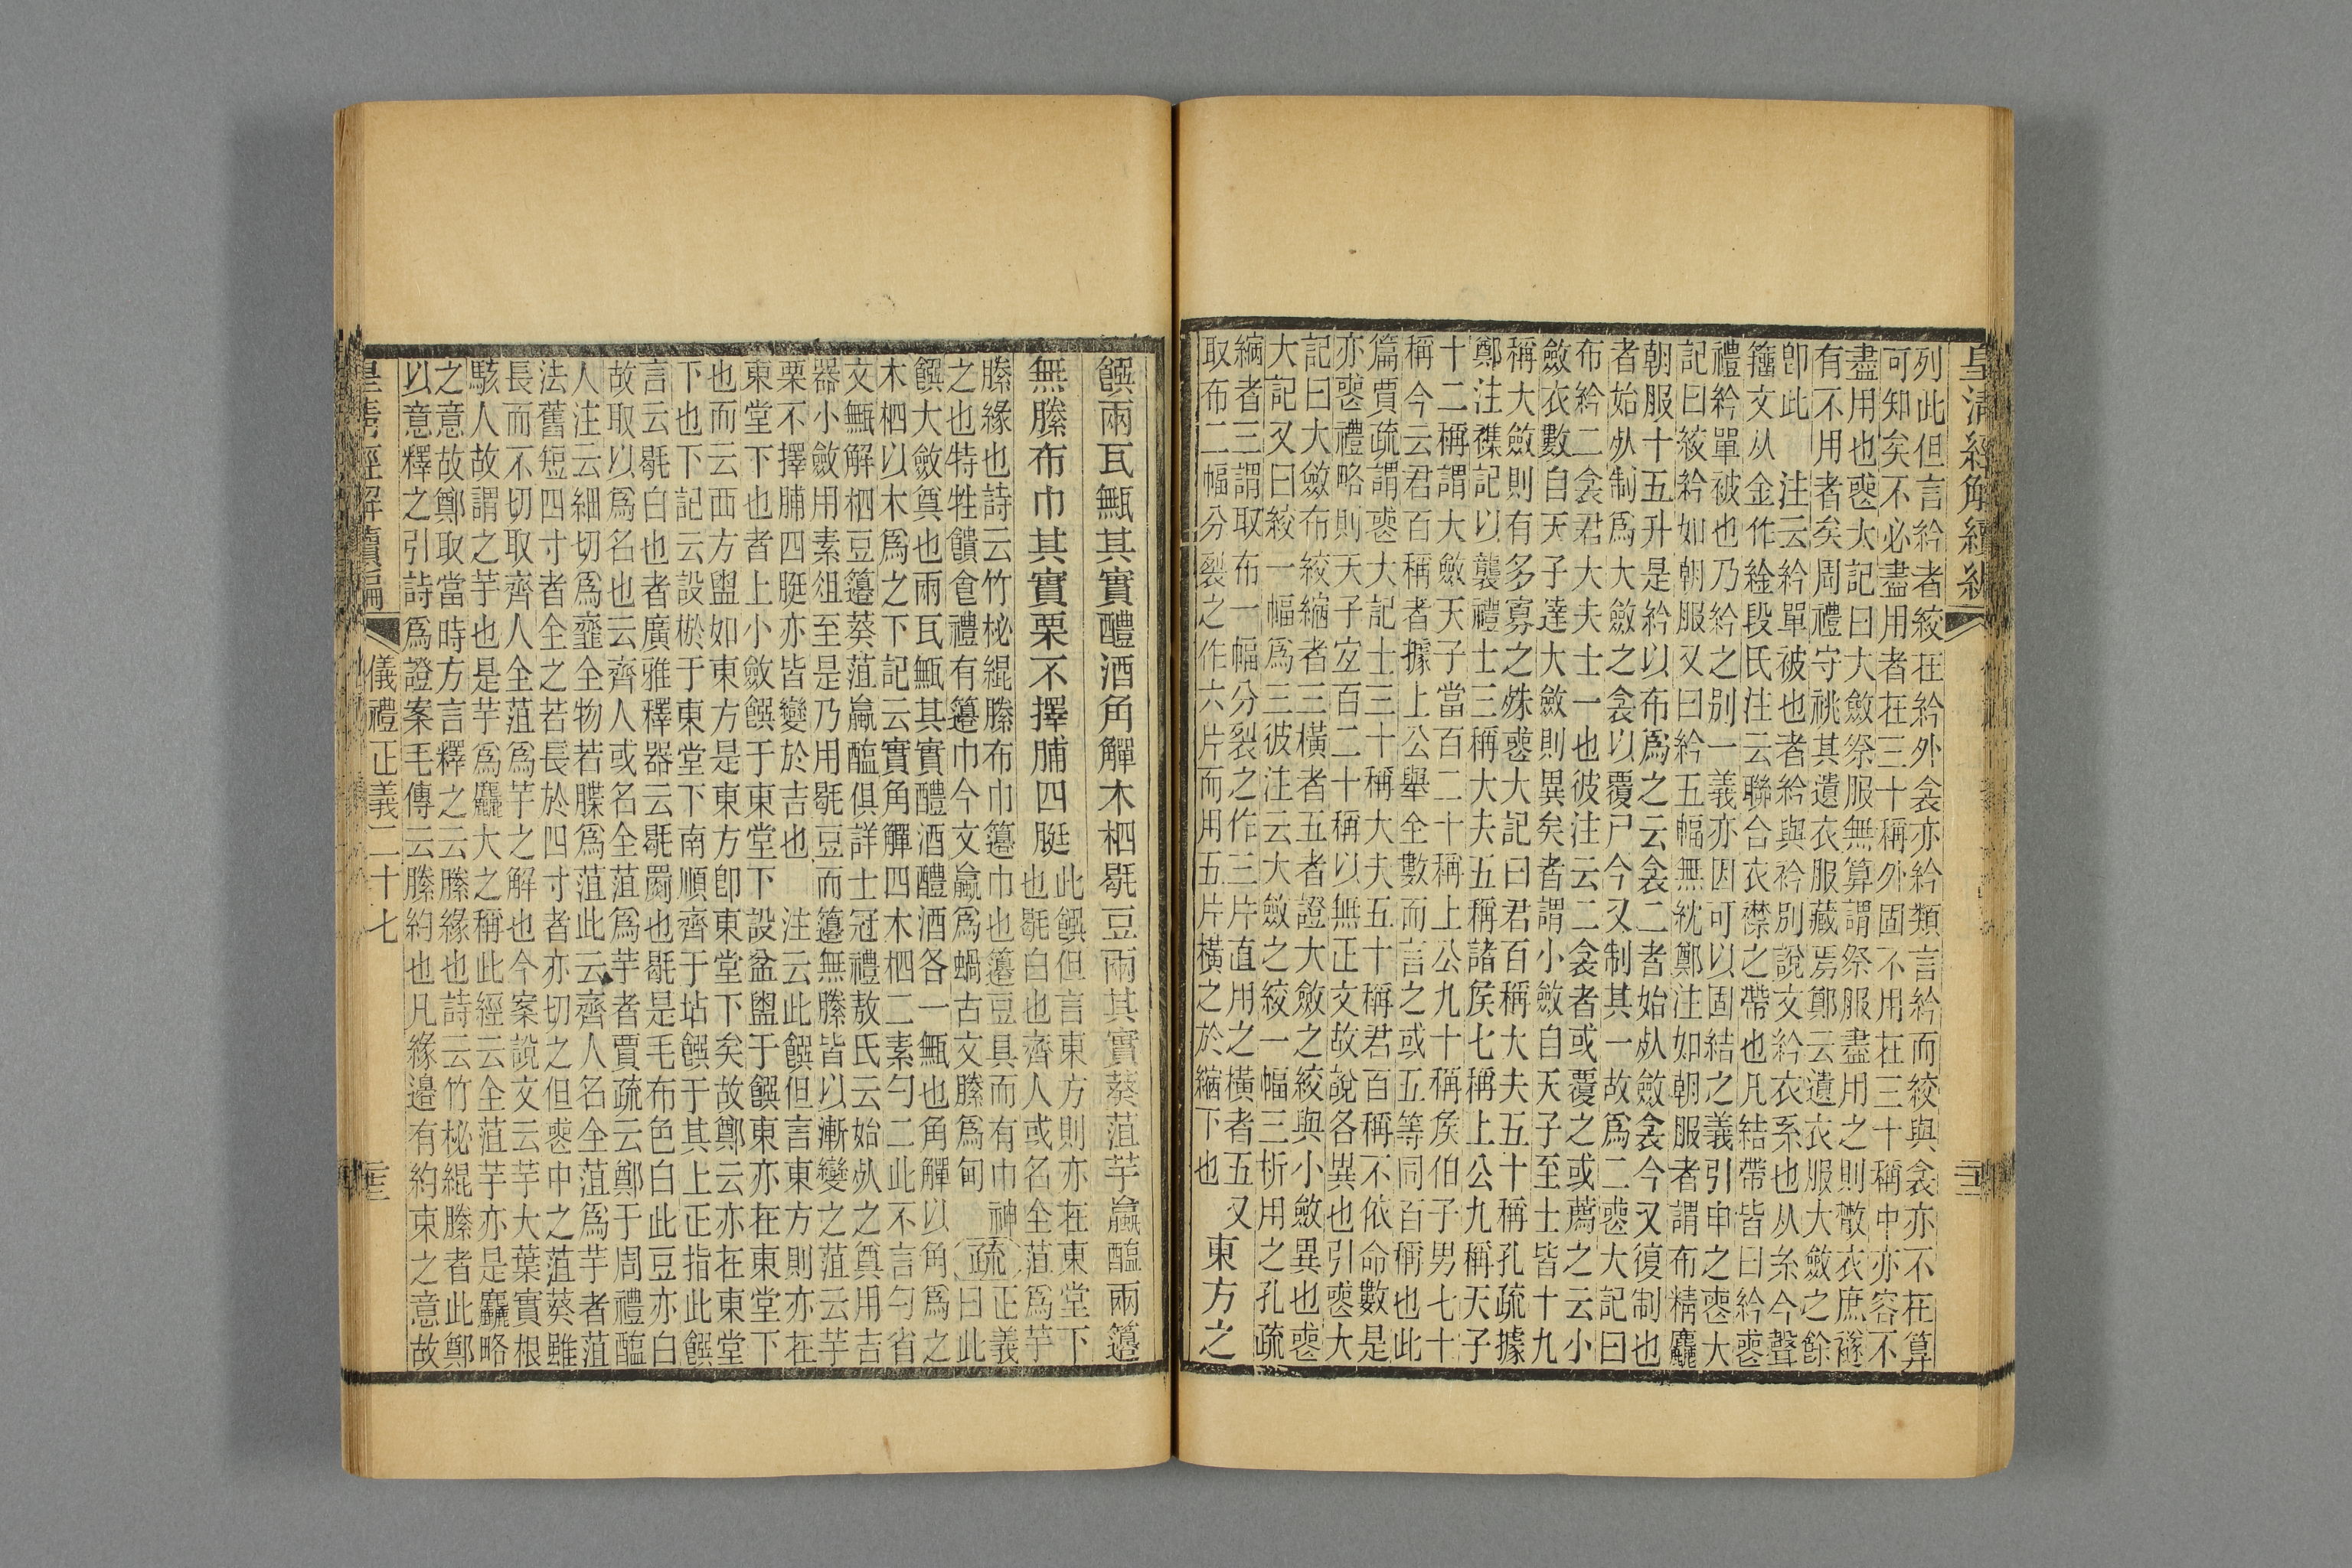 皇清經解續編
列此但言紟者絞在紟外衾亦紟類言紟而絞與衾亦不在算
可知矣不必盡用者在三十稱外固不用在三十稱中亦容不
盡用也䘮大記曰大斂祭服無算謂祭服盡用之則散衣庶襚
有不用者矣周禮守祧其遺衣服藏焉鄭云遺衣服大斂之餘
卽此　注云紟單被也者紟與衿別說文紟衣系也从糸今聲
籒文从金作䋮段氏注云聯合衣襟之帶也凡結帶皆曰紟䘮
禮紟單被也乃紟之別一義亦因可以固結之義引申之䘮大
記曰絞紟如朝服又曰紟五幅無紞鄭注如朝服者謂布精麤
朝服十五升是紟以布爲之云衾二者始死斂衾今又復制也
者始死制爲大斂之衾以覆尸今又制其一故爲二䘮大記曰
布紟二衾君大夫士一也彼注云二衾者或覆之或薦之云小
斂衣數自天子達大斂則異矣者謂小斂自天子至士皆十九
稱大斂則有多寡之殊䘮大記曰君百稱大夫五十稱孔疏據
鄭注襍記以襲禮士三稱大夫五稱諸矦七稱上公九稱天子
十二稱謂大斂天子當百二十稱上公九十稱矦伯子男七十
稱今云君百稱者據上公舉全數而言之或五等同百稱也此
篇賈疏謂䘮大記士三十稱大夫五十稱君百稱不依命數是
亦䘮禮略則天子宜百二十稱以無正文故說各異也引䘮大
記曰大斂布絞縮者三橫者五者證大斂之絞與小斂異也䘮
大記又曰絞一幅爲三彼注云大斂之絞一幅三析用之孔疏
縮者三謂取布一幅分裂之作三片直用之橫者五又
取布二幅分裂之作六片而用五片橫之於縮下也
東方之
饌兩瓦甒其實醴酒角觶木柶毼豆兩其實葵菹芋蠃醢兩籩
無縢布巾其實栗不擇脯四脡
此饌但言東方則亦在東堂下
也毼白也齊人或名全菹爲芋
縢緣也詩云竹柲緄縢布巾籩巾也籩豆具而有巾神
之也特牲饋食禮有籩巾今文蠃爲蝸古文縢爲甸
疏
正義
曰此
饌大斂奠也兩瓦甒其實醴酒醴酒各一甒也角觶以角爲之
木柶以木爲之下記云實角觶四木柶二素勺二此不言勺省
文甒解柶豆籩葵菹蠃醢俱詳士冠禮敖氏云始死之奠用吉
器小斂用素俎至是乃用毼豆而籩無縢皆以漸變之菹云芋
栗不擇脯四脡亦皆變於吉也　注云此饌但言東方則亦在
東堂下也者上小斂饌于東堂下　設盆盥于饌東亦在東堂下
也而云西方盥如東方是東方卽東堂下矣故鄭云亦在東堂
下也下記云設棜于東堂下南順齊于坫饌于其上正指此饌
言云毼白也者廣雅釋器云毼罽也毼是毛布色白此豆亦白
故取以爲名也云齊人或名全菹爲芋者賈疏云鄭于周禮醢
人注云細切爲齏全物若䐑爲菹此云齊人名全菹爲芋者菹
法舊短四寸者全之若長於四寸者亦切之但䘮中之菹葵雖
長而不切取齊人全菹爲芋之解也今案說文云芋大葉實根
駭人故謂之芋也是芋爲麤大之稱此經云全菹芋亦是麤略
之意故鄭取當時方言釋之云縢緣也詩云竹柲緄縢者此鄭
以意釋之引詩爲證案毛傳云縢約也凡緣邊有約束之意故
皇清經解續編
儀禮正義二十七